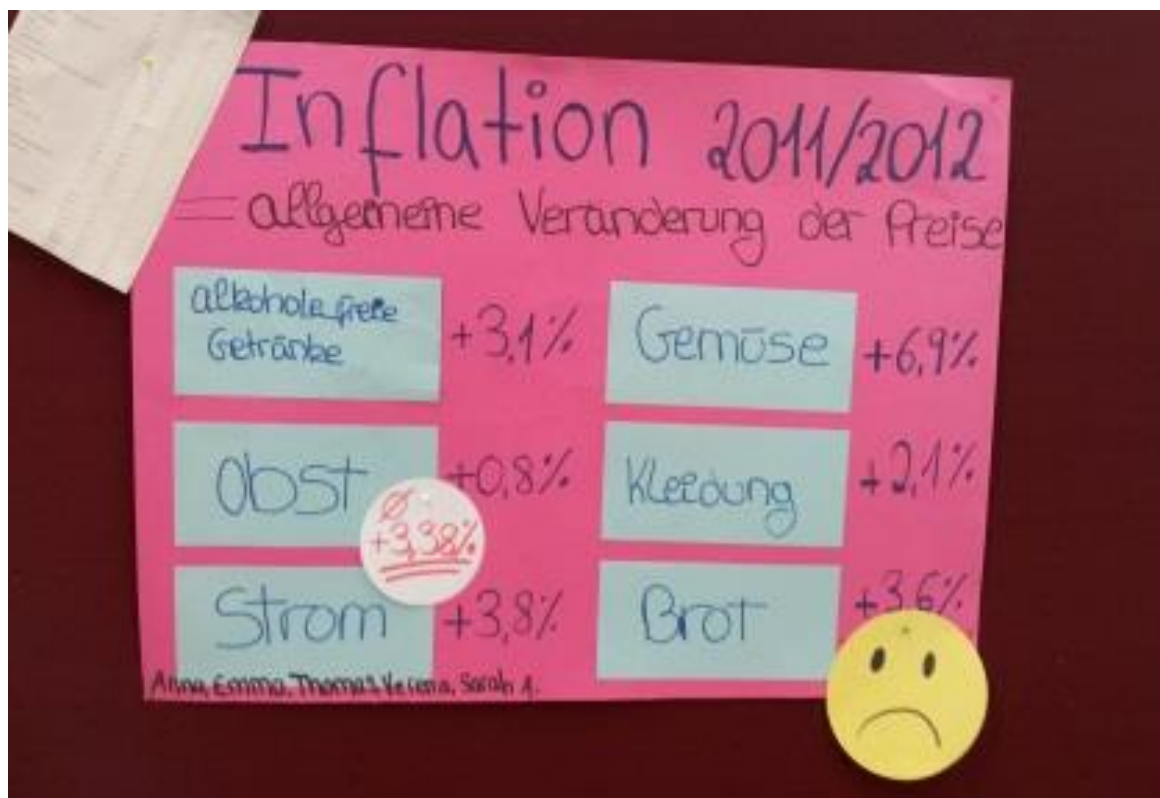 Inflation 2011/2012
= allgemeine Veränderung der Preise
alkoholefreie
Getränke
+3,1%
Gemüse
+6,9%
Obst
+0,8%
Kleidung
+2,1%
Ø
+3,38%
Strom
+3,8%
Brot
+3,6%
Anna, Emma, Thomas, Verena, Sarah A.